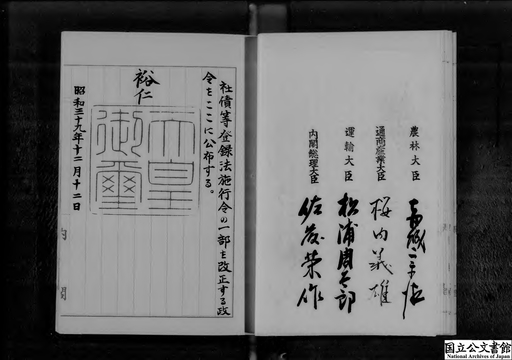 社債等登録法施行令の一部を改正する政
令をここに公布する。
裕仁
天皇
御璽
昭和三十九年十二月十二日
内閣
農林大臣
通商産業大臣 桜内義雄
運輸大臣 松浦周太郎
内閣総理大臣 佐藤栄作
国立公文書館
National Archives of Japan